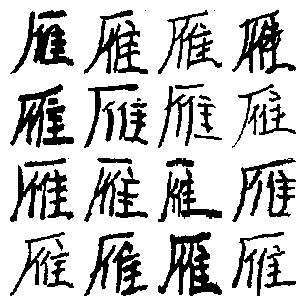 雁雁雁雁
雁雁雁雁
雁雁雁雁
雁雁雁雁